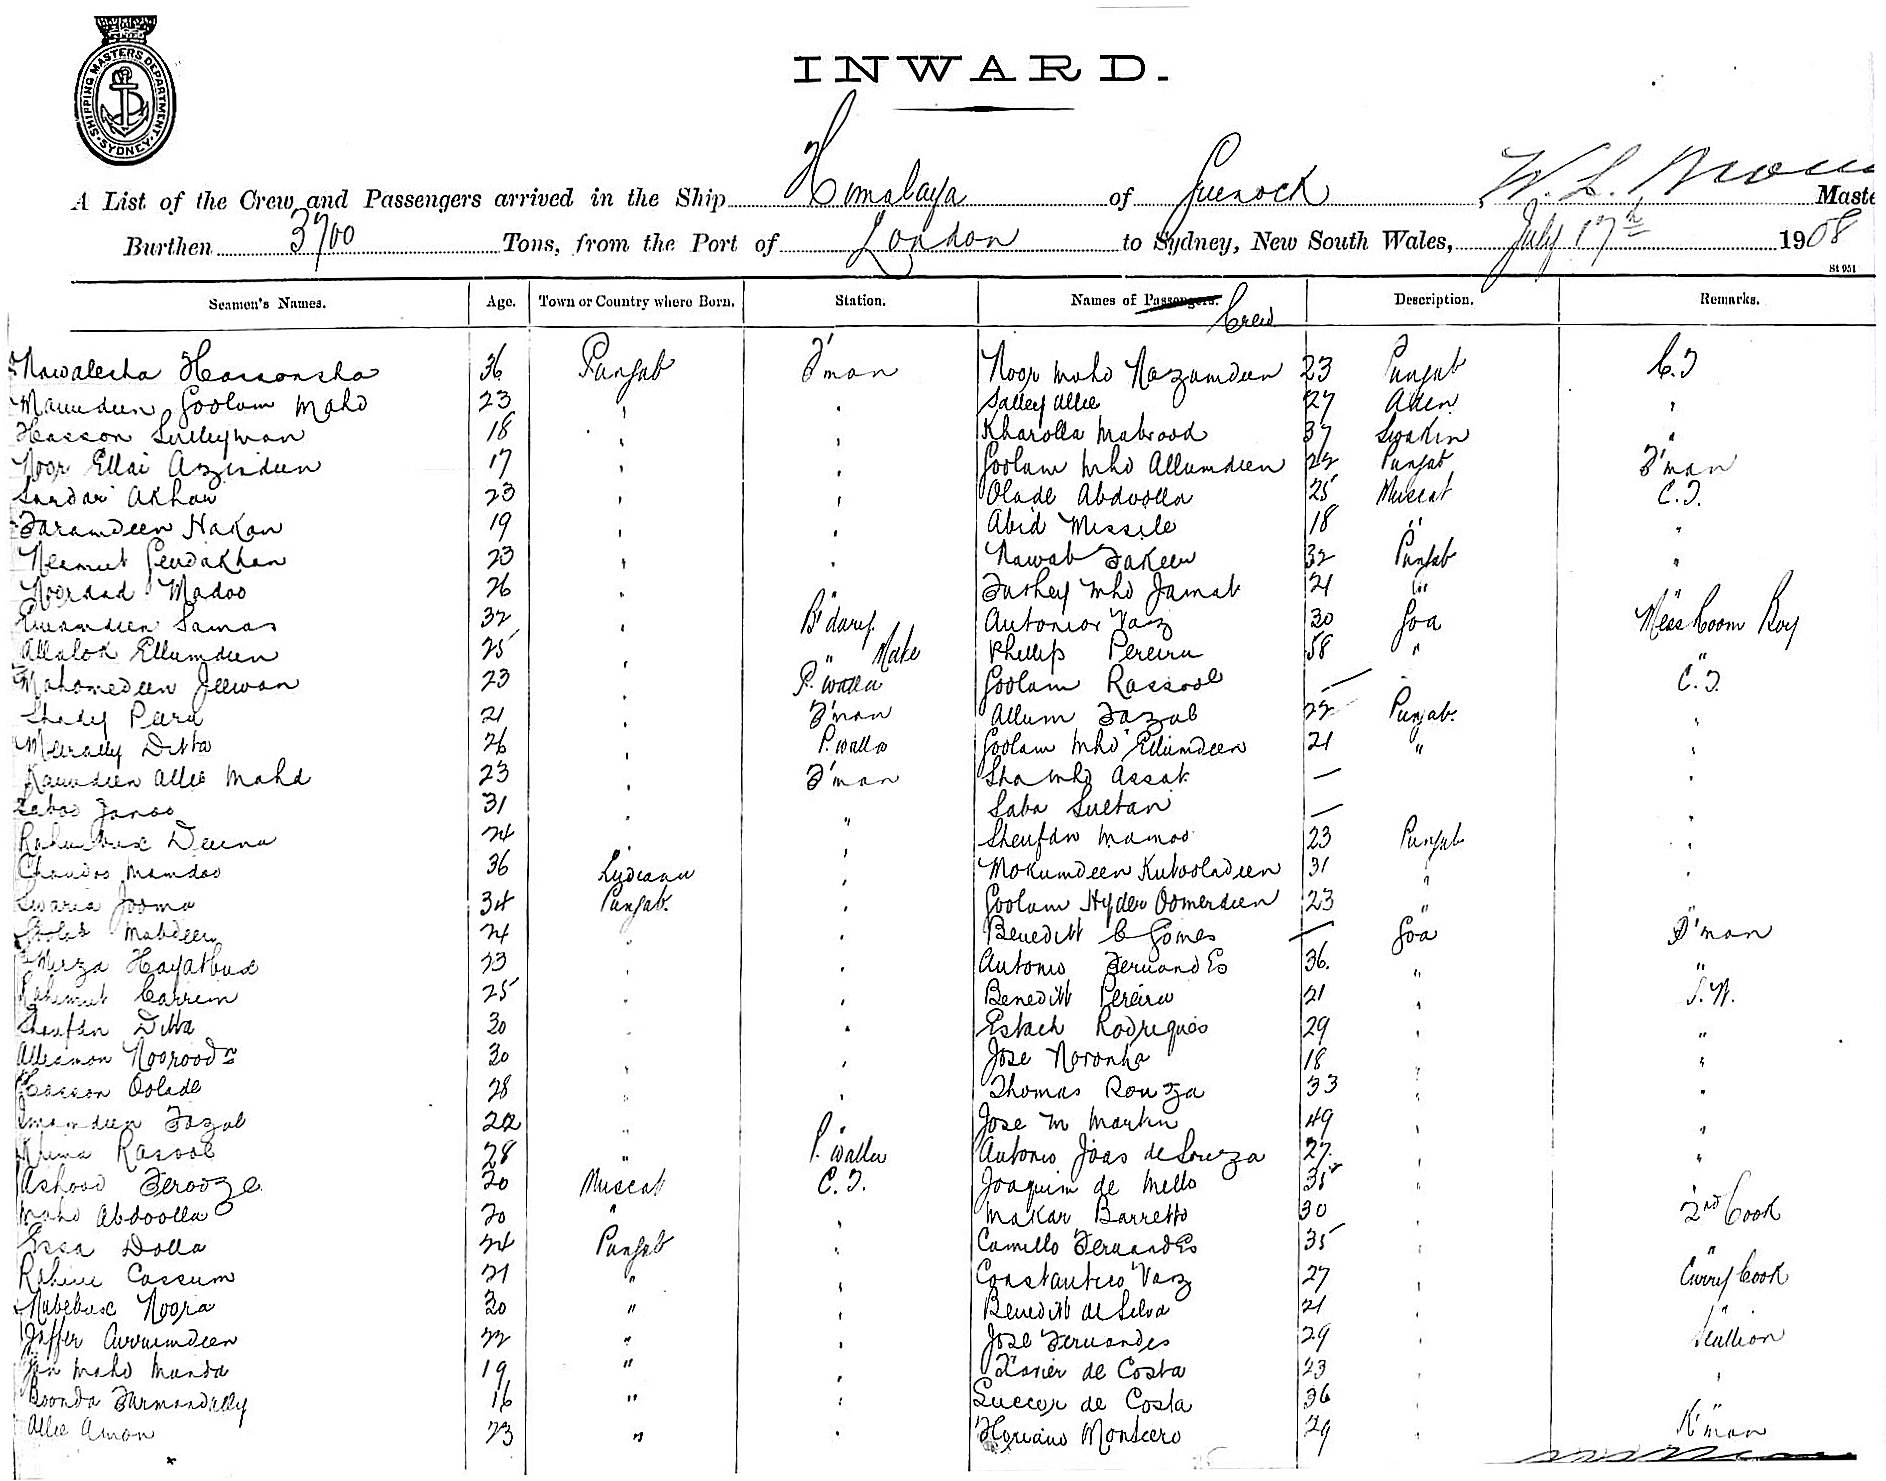 SHIPPING MASTERS DEPARTMENT. SYDNEY
INWARD.
A List of the Crew and Passengers arrived in the Ship Himalaya of Greenock W. L. Maste
Burthen 3700 Tons, from the Port of London to Sydney, New South Wales, July 17th 1908
St 951
Seamen's Names. Age. Town or Country where Born. Station. Names of Passengers. Crew Description. Remarks.
Nawalesha Hassonsha 36 Punjab F'man Noor Mohd Nazamdeen 23 Punjab C.T
Goolam Mahd 23 " " Salley Allie 27 Aden "
Hasson Sulleyman 18 " " Kharolla Mabrood 37 Suakin "
Noor Ellai Azindeen 17 " " Goolam Mhd Allumdeen 22 Punjab F'man
Sardar Akhan 23 " " Olade Abdoolla 25 Muscat C.T.
Faramdeen Hakan 19 " " Abid Missile 18 " "
Neamut 23 " " Nawab Fakeer 32 Punjab "
Noordad Madoo 26 " " Fathey Mhd Jamal 21 " "
Samas 32 " B'dary Antonio Vaz 30 Goa Mess Room Boy
Allalok Ellumdeen 25 " " Mate Phillip Pereira 58 " "
Mahomedeen Jeewan 23 " P. walla Goolam Rassool — C.T.
Shady Peera 21 " F'man Allum Fazal 22 Punjab "
Ditta 26 " P. walla Goolam Mhd Ellumdeen 21 " "
Allie Mahd 23 " F'man Sha Mhd Assak — "
31 " " Saba Sultan — "
24 " " Sheufan Mamoo 23 Punjab "
Mamdoo 36 Lydeana " Mokumdeen Kutooladeen 31 " "
Jooma 34 Punjab " Goolam Hyder Oomerdeen 23 " "
Mahdeen 24 " " Beneditt C Gomes — Goa F'man
Mirza Hayatbux 23 " " Antonio Fernandes 36 " "
Rahemut Carrem 25 " " Beneditt Pereira 21 " S.W.
Sheufan Ditta 30 " " Estach Rodrigues 29 " "
Alleamon Noorood'n 30 " " Jose Noronha 18 " "
Hasson Oolade 28 " " Thomas Rouza 33 " "
Imamdeen Fazal 22 " " Jose M Martin 49 " "
Khima Rasool 28 " P. walla Antonio Joas de Souza 27 " "
Ashood Ferooze 20 Muscat C.T. Joaquim de Mello 35 "
Mahd Abdoolla 20 " " Makar Barretto 30 " 2nd Cook
Essa Dolla 24 Punjab " Camillo Fernandes 35 " "
Rahim Cassum 21 " " Constantico Vaz 27 " Curry Cook
Nubebux Noora 20 " " Beneditt de Silva 21 " "
Jaffer 22 " " Jose Fernandes 29 " Scullion
Jan Mahd Munda 19 " " Xavier de Costa 23 " "
Boonda Farmandally 16 " " Succor de Costa 36 " "
Allie Amon 23 " " Floriano Monteiro 29 " K'man